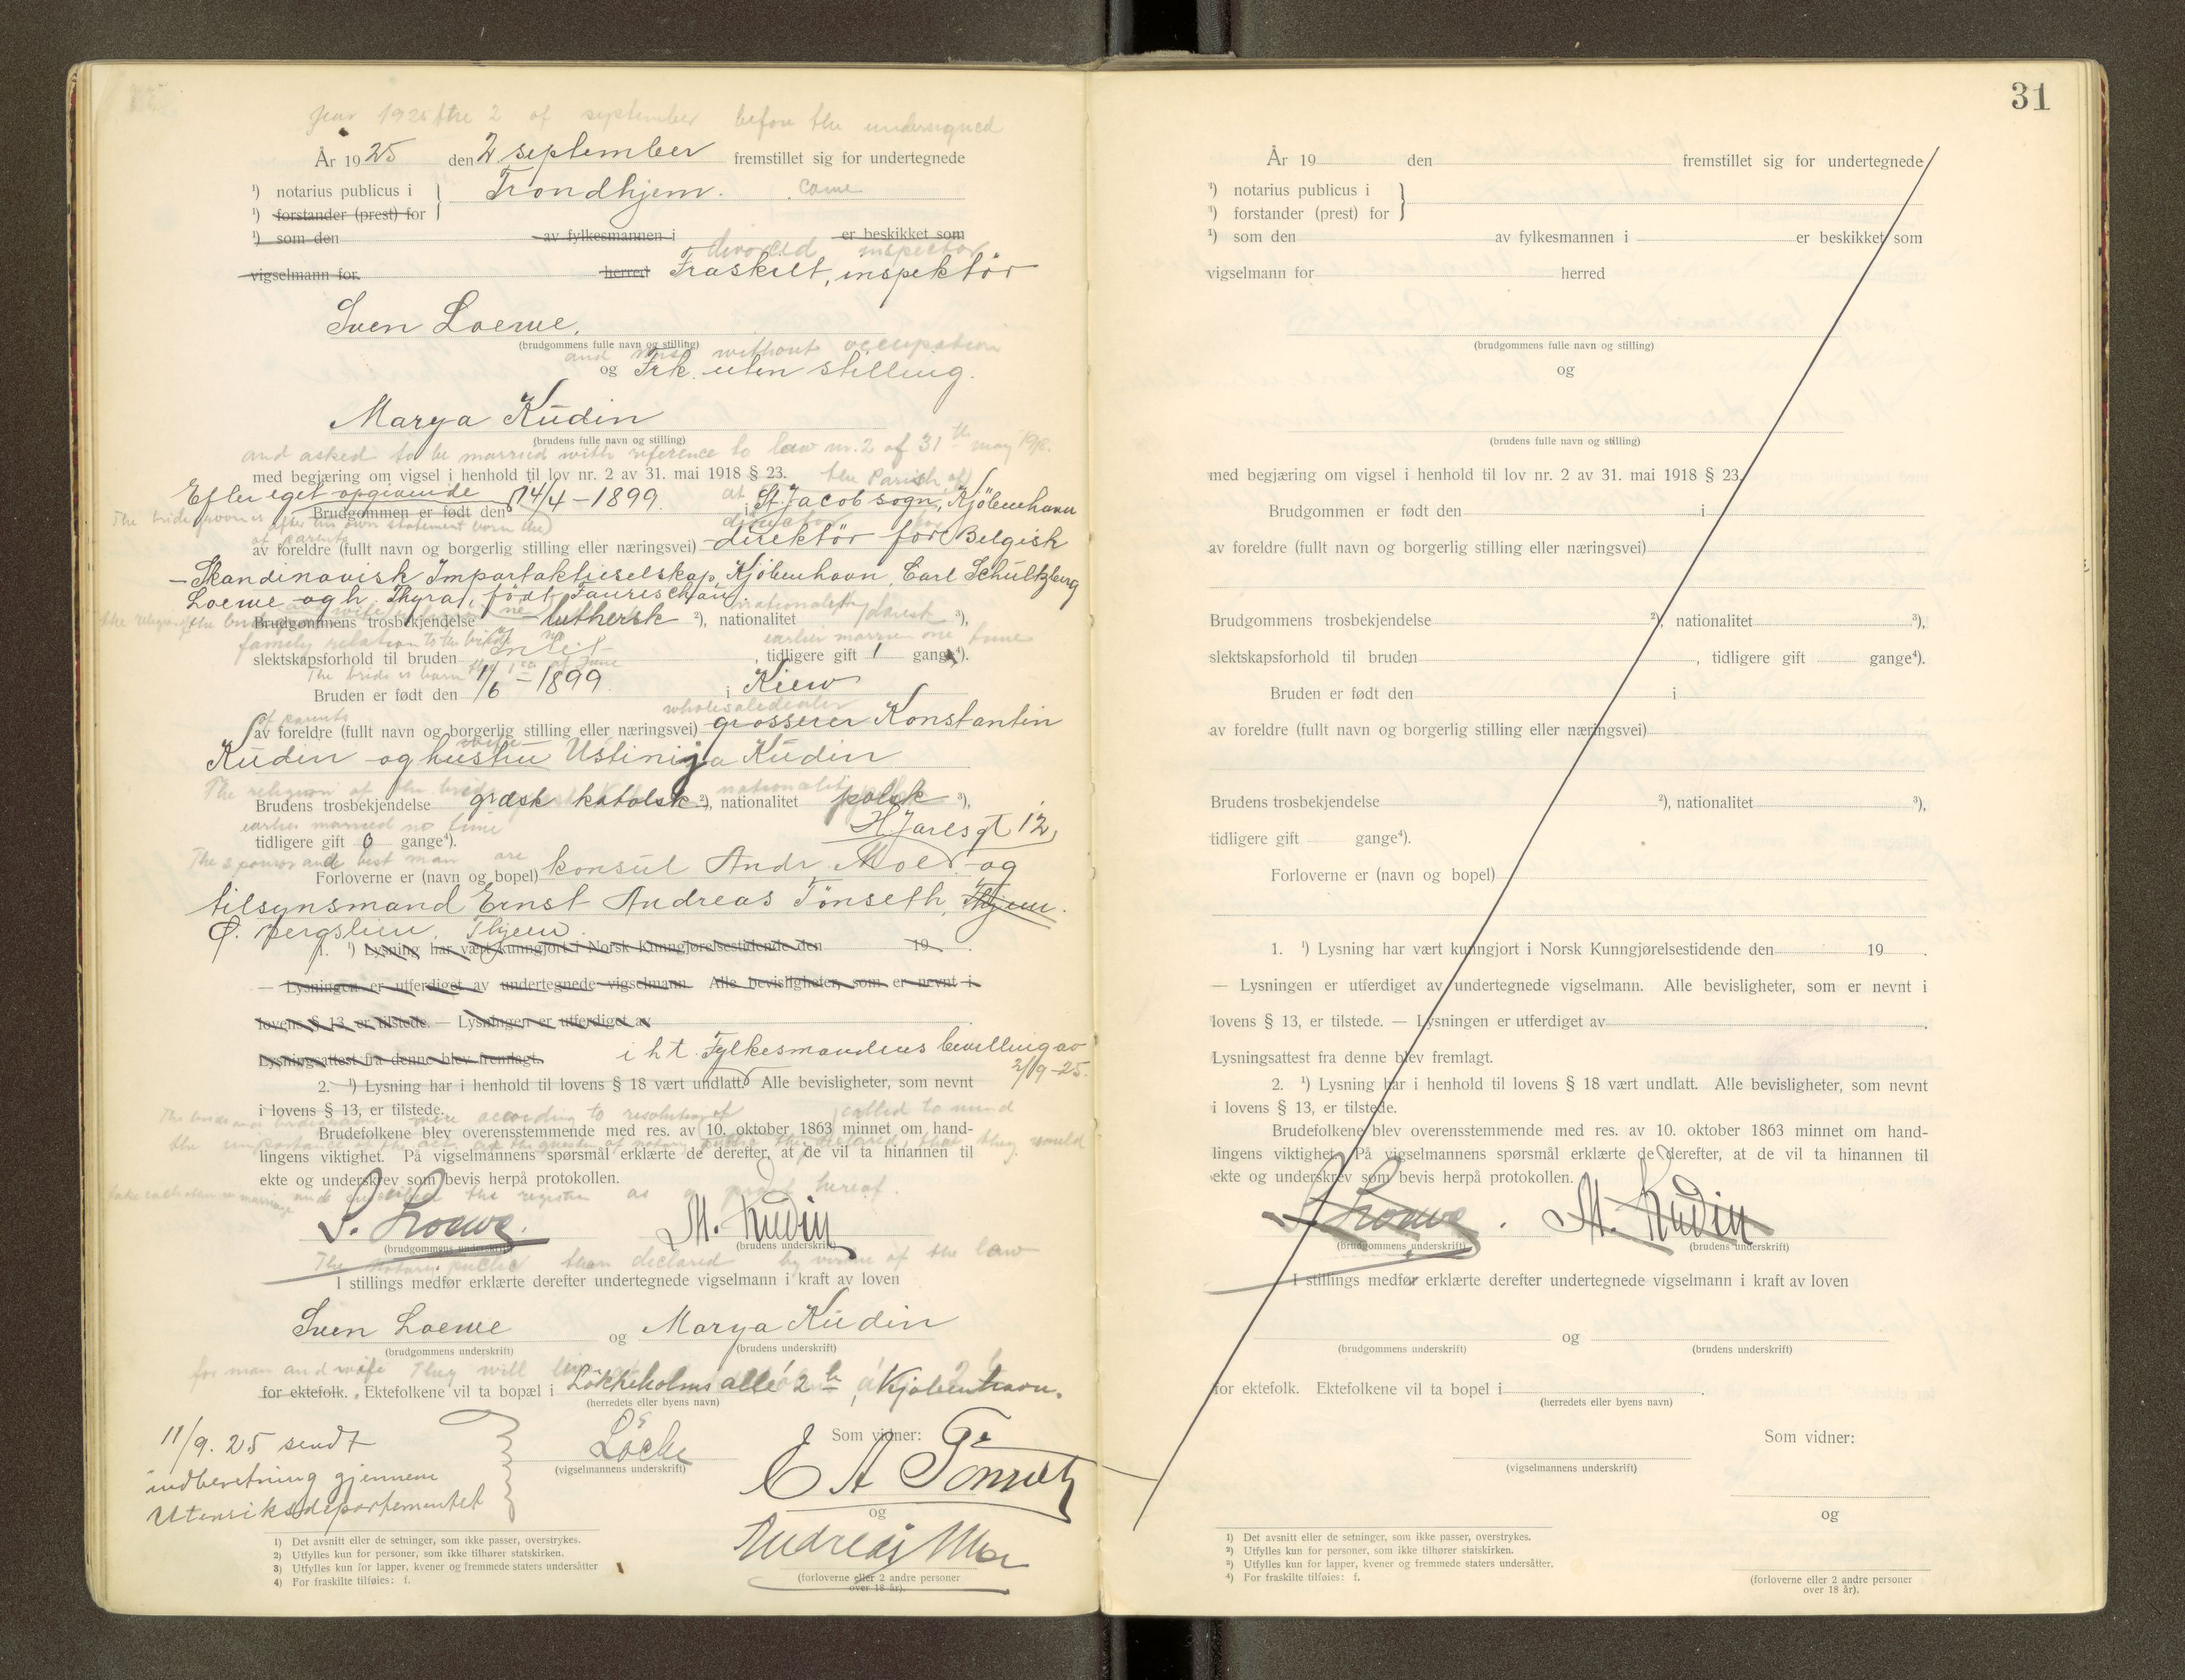 year 1925 the 2 of september before the undersigned
År 1925 den 2 september fremstillet sig for undertegnede
¹) notarius publicus i Trondhjem. came
¹) forstander (prest) for
¹) som den av fylkesmannen i er beskikket som
divorced inspector
vigselmann for herred Fraskilt, inspektör
Sven Loewe.
(brudgommens fulle navn og stilling)
and miss without occupation
og Frk. uten stilling.
Marya Kudin
(brudens fulle navn og stilling)
and asked to be married with reference to law nr. 2 of 31th may 1918.
med begjæring om vigsel i henhold til lov nr. 2 av 31. mai 1918 § 23.
at the Parish of
Efter eget opgivende
Brudgommen er født den 14/4 - 1899. i St. Jacob sogn, Kjöbenhavn
The bridegroom is after his own statement born the
of parents director for
av foreldre (fullt navn og borgerlig stilling eller næringsvei) direktör for Belgisk
- Skandinavisk Importaktieselskap, Kjöbenhavn, Carl Schultzberg
Loewe og h. Thyra, født Faurschau.
the religion of the bridegroom nationality
Brudgommens trosbekjendelse - luthersk ²), nationalitet dansk ³),
family relation to the bride no earlier married one time
slektskapsforhold til bruden Intet, tidligere gift 1 gang ⁴).
The bride is born the 1 of June
Bruden er født den 1/6 - 1899. i Kiew
of parents wholesaledealer
av foreldre (fullt navn og borgerlig stilling eller næringsvei) grosserer Konstantin
wife
Kudin og hustru Ustinija Kudin
The religion of the bride nationality
Brudens trosbekjendelse græsk katolsk ²), nationalitet polsk ³),
earlier married no time
tidligere gift 0 gange⁴). H. Jarlsgt 12,
The sponsor and best man are
Forloverne er (navn og bopel) konsul Andr. Moe og
tilsynsmand Ernst Andreas Tönseth, Thjem.
Ø. Bergslien, Thjem.
1. ¹) Lysning har vært kunngjort i Norsk Kunngjørelsestidende den 19 .
— Lysningen er utferdiget av undertegnede vigselmann. Alle bevisligheter, som er nevnt i
lovens § 13, er tilstede. — Lysningen er utferdiget av
Lysningsattest fra denne blev fremlagt. i h. t. Fylkesmandens bevilling av
2/9-25.
2. ¹) Lysning har i henhold til lovens § 18 vært undlatt. Alle bevisligheter, som nevnt
i lovens § 13, er tilstede.
The bride and bridegroom were according to resolution of called to mind
Brudefolkene blev overensstemmende med res. av 10. oktober 1863 minnet om hand-
the importance of the act. At the question of notary public they declared, that they would
lingens viktighet. På vigselmannens spørsmål erklærte de derefter, at de vil ta hinannen til
ekte og underskrev som bevis herpå protokollen.
take each other in marriage and subscribed the register as a proof hereof.
S. Loewe. M. Kudin
(brudgommens underskrift) (brudens underskrift)
The notary public then declared by virtue of the law
I stillings medfør erklærte derefter undertegnede vigselmann i kraft av loven
Sven Loewe og Marya Kudin
(brudgommens underskrift) (brudens underskrift)
for man and wife They will live
for ektefolk. Ektefolkene vil ta bopæl i Lökkeholms allé 2, Kjöbenhavn.
(herredets eller byens navn)
11/9. 25 sendt
indberetning gjennem
Utenriksdepartementet
(vigselmannens underskrift)
Som vidner:
E A Tönseth
og
Andreas Moe
(forloverne eller 2 andre personer
over 18 år).
1) Det avsnitt eller de setninger, som ikke passer, overstrykes.
2) Utfylles kun for personer, som ikke tilhører statskirken.
3) Utfylles kun for lapper, kvener og fremmede staters undersåtter
4) For fraskilte tilføies: f.
31
År 19 den fremstillet sig for undertegnede
¹) notarius publicus i
¹) forstander (prest) for
¹) som den av fylkesmannen i er beskikket som
vigselmann for herred
(brudgommens fulle navn og stilling)
og
(brudens fulle navn og stilling)
med begjæring om vigsel i henhold til lov nr. 2 av 31. mai 1918 § 23.
Brudgommen er født den i
av foreldre (fullt navn og borgerlig stilling eller næringsvei)
Brudgommens trosbekjendelse ²), nationalitet ³),
slektskapsforhold til bruden , tidligere gift gange⁴).
Bruden er født den i
av foreldre (fullt navn og borgerlig stilling eller næringsvei)
Brudens trosbekjendelse ²), nationalitet ³),
tidligere gift gange⁴).
Forloverne er (navn og bopel)
1. ¹) Lysning har vært kunngjort i Norsk Kunngjørelsestidende den 19 .
— Lysningen er utferdiget av undertegnede vigselmann. Alle bevisligheter, som er nevnt i
lovens § 13, er tilstede. — Lysningen er utferdiget av .
Lysningsattest fra denne blev fremlagt.
2. ¹) Lysning har i henhold til lovens § 18 vært undlatt. Alle bevisligheter, som nevnt
i lovens § 13, er tilstede.
Brudefolkene blev overensstemmende med res. av 10. oktober 1863 minnet om hand-
lingens viktighet. På vigselmannens spørsmål erklærte de derefter, at de vil ta hinannen til
ekte og underskrev som bevis herpå protokollen.
S. Loewe. M. Kudin
(brudgommens underskrift) (brudens underskrift)
I stillings medfør erklærte derefter undertegnede vigselmann i kraft av loven
og
(brudgommens underskrift) (brudens underskrift)
for ektefolk. Ektefolkene vil ta bopel i .
(herredets eller byens navn)
Som vidner:
(vigselmannens underskrift)
og
1) Det avsnitt eller de setninger, som ikke passer, overstrykes.
2) Utfylles kun for personer, som ikke tilhører statskirken.
3) Utfylles kun for lapper, kvener og fremmede staters undersåtter.
4) For fraskilte tilføies: f.
(forloverne eller 2 andre personer
over 18 år).